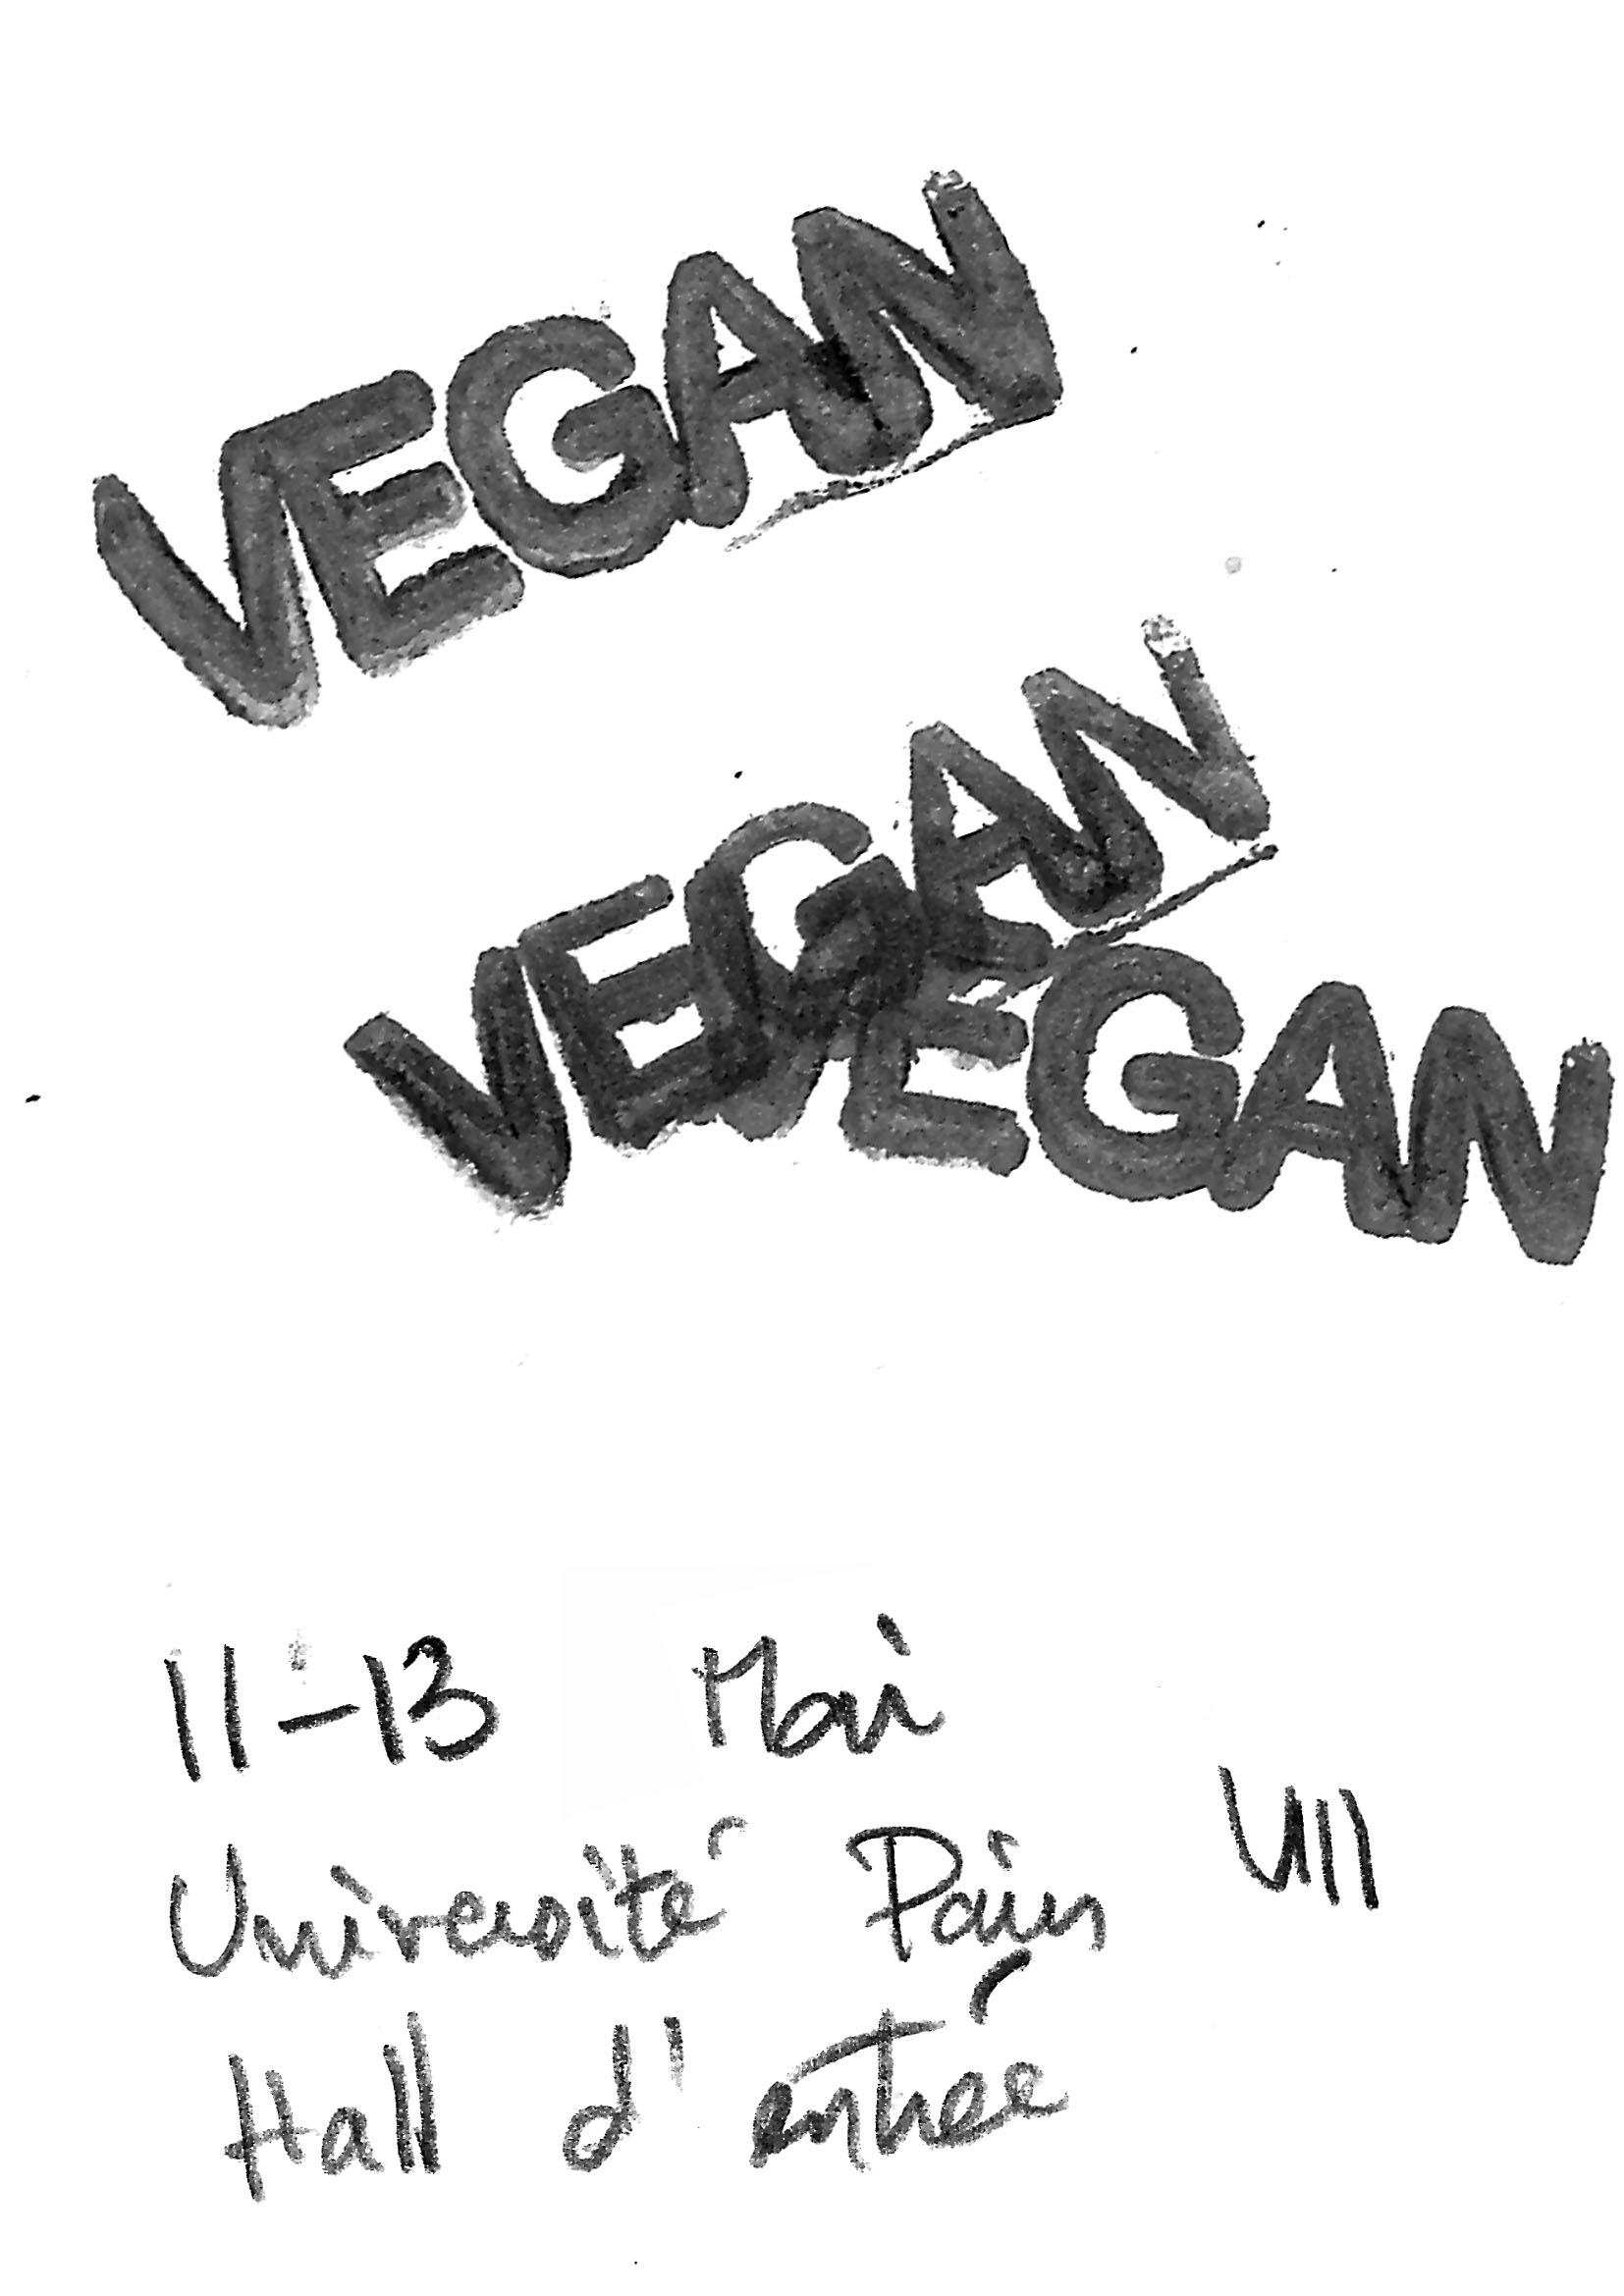 VEGAN
VEGAN
VEGAN
11-13 Mai
Université Paris VII
Hall d'entrée